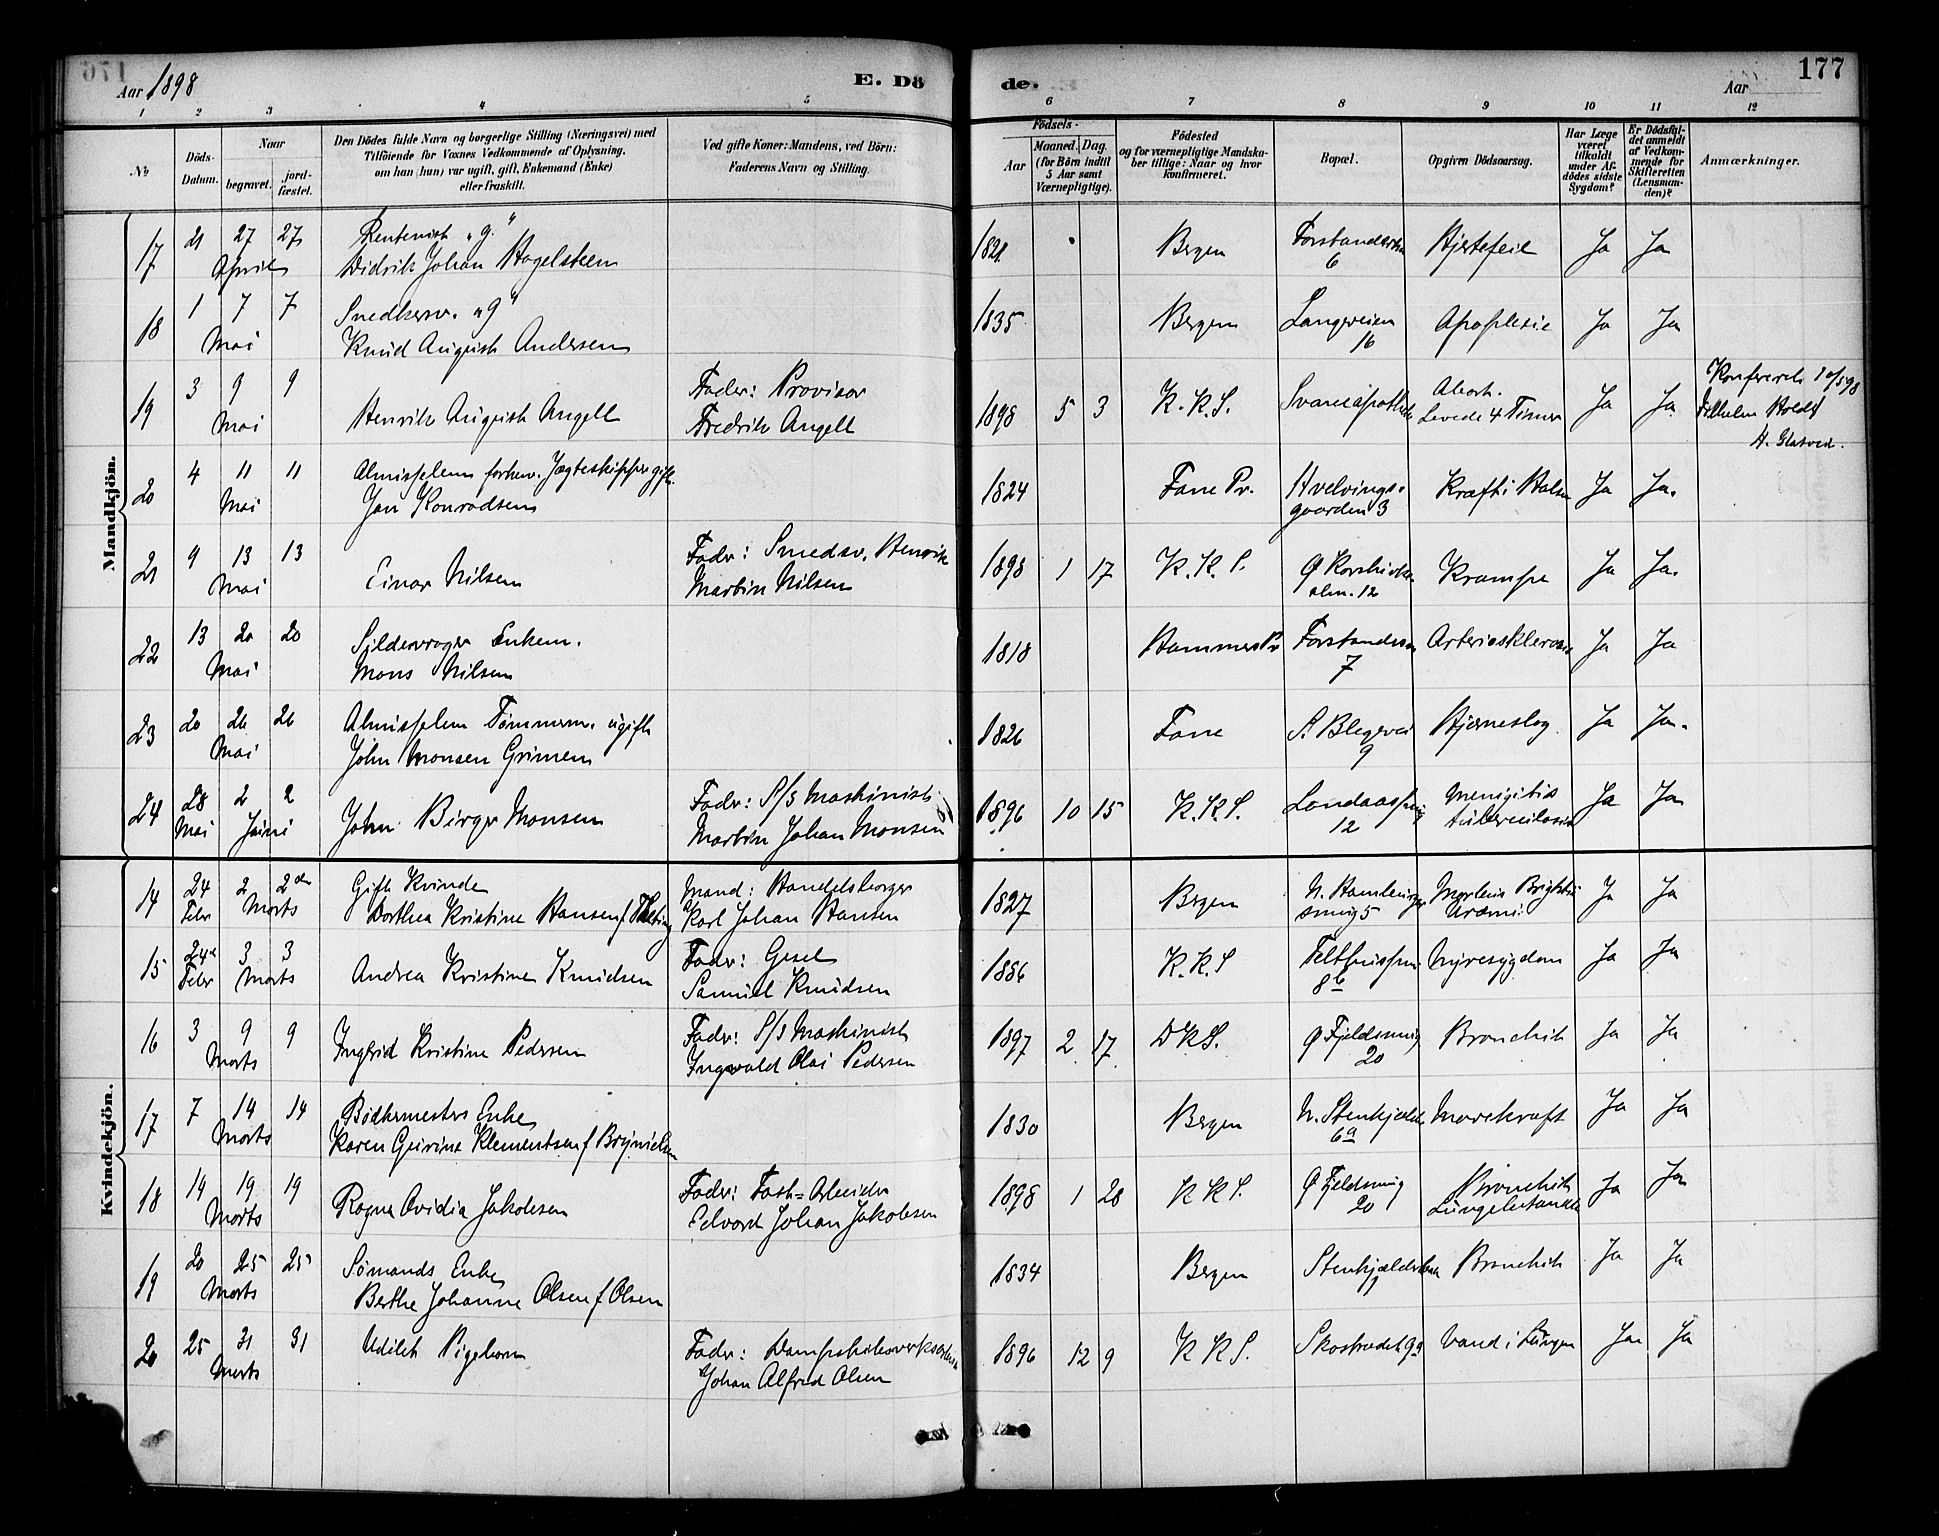 Aar 1898
E. Dö
de.
Aar
177
1 2 3 4 5 6 7 8 9 10 11 12
№
Döds-Datum.
Naar
begravet.
jord-fæstet.
Den Dödes fulde Navn og borgerlige Stilling (Næringsvei) med
Tilföiende for Voxnes Vedkommende af Oplysning,
om han (hun) var ugift, gift, Enkemand (Enke)
eller fraskilt.
Ved gifte Koner: Mandens, ved Börn:
Faderens Navn og Stilling.
Födsels-
Aar
Maaned. Dag.
(for Börn indtil
5 Aar samt
Værnepligtige).
Födested
og for værnepligtige Mandska-
ber tillige: Naar og hvor
konfirmeret.
Bopæl.
Opgiven Dödsaarsag.
Har Læge
været
tilkaldt
under Af-
dödes sidste
Sygdom?
Er Dödsfal-
det anmeldt
af Vedkom-
mende for
Skifteretten
(Lensman-
den)?
Anmærkninger.
Mandkjön.
17 21 27 27 Rentenist "g."
April Didrik Johan Hagelsteen
1821 Bergen
6 Hjertefeil Ja Ja
18 1 7 7 Snedkersv. "g"
Mai Knud August Andersen
1835 Bergen Langeveien
16 Apoplexie Ja Ja
19 3 9 9 Fader: Provisor
Mai Henrik August Angell Fredrik Angell
1898 5 3 K.K.S. Svaneapothek
Levede 4 Timer Ja Ja
20 4 11 11 Almisselem forhenv. Jægteskipper gift.
Mai Jan Konradsen
1824 Fane Pr. Hvelvings-
gaarden 3 Kræft i Halsen Ja Ja.
21 9 13 13 Fader: Smedsv. Henrik
Mai Einar Nilsen Martin Nilsen
1898 1 17 K.K.S. Ø Korskirke
alm. 12 Krampe Ja Ja.
22 13 20 20 Sildevrager Enkem.
Mai Mons Nilsen
1818 Hammers Pr
7 Arteriosklerose Ja Ja
23 20 26 26 Almisselem Tømmerm. ugift
Mai John Monsen Grimen
1826 Fane S. Blegevei
9 Hjerneslag. Ja Ja.
24 28 2 2 Fader: S/s Maskinist
Mai Juni John Birger Monsen Martin Johan Monsen
1896 10 15 K.K.S. Landaassmug
12 Ja Ja
Kvindekjön.
14 24 2 2den Gift Kvinde Mand: Handelsborger
Febr Marts Dorthea Kristine Hansen f. Karl Johan Hansen
1827 Bergen
smug 5 Morbus Brightii Ja Ja
15 24de 3 3 Fader:
Febr Marts Andrea Kristine Knudsen Samuel Knudsen
1886 K.K.S
8b Nyresygdom Ja Ja
16 3 9 9 Fader: S/s Maskinist
Marts Ingfrid Kristine Pedersen Ingvald Olai Pedersen
1897 2 17 DKS. Ø Fjeldsmug
20 Bronchit Ja Ja
17 7 14 14 Bødkermesters Enke
Marts Karen Gurine Klementsen f Brynildsen
1830 Bergen N. Stenkjælder
6a Mavekræft Ja Ja
18 14 19 19 Fader: Arbeider
Marts Ragna Ovidia Jakobsen Edvard Johan Jakobsen
1898 1 28 KKS. Ø Fjeldsmug
20 Bronchit
Lungebetændelse Ja Ja
19 20 25 25 Sømands Enke
Marts Berthe Johanne Olsen f Olsen
1834 Bergen Bronchit Ja Ja
20 25 31 31 Udøbt Pigebarn Fader:
Marts Johan Alfred Olsen
1896 12 9 KKS. Skostrædet 9a Vand i Lungen Ja Ja